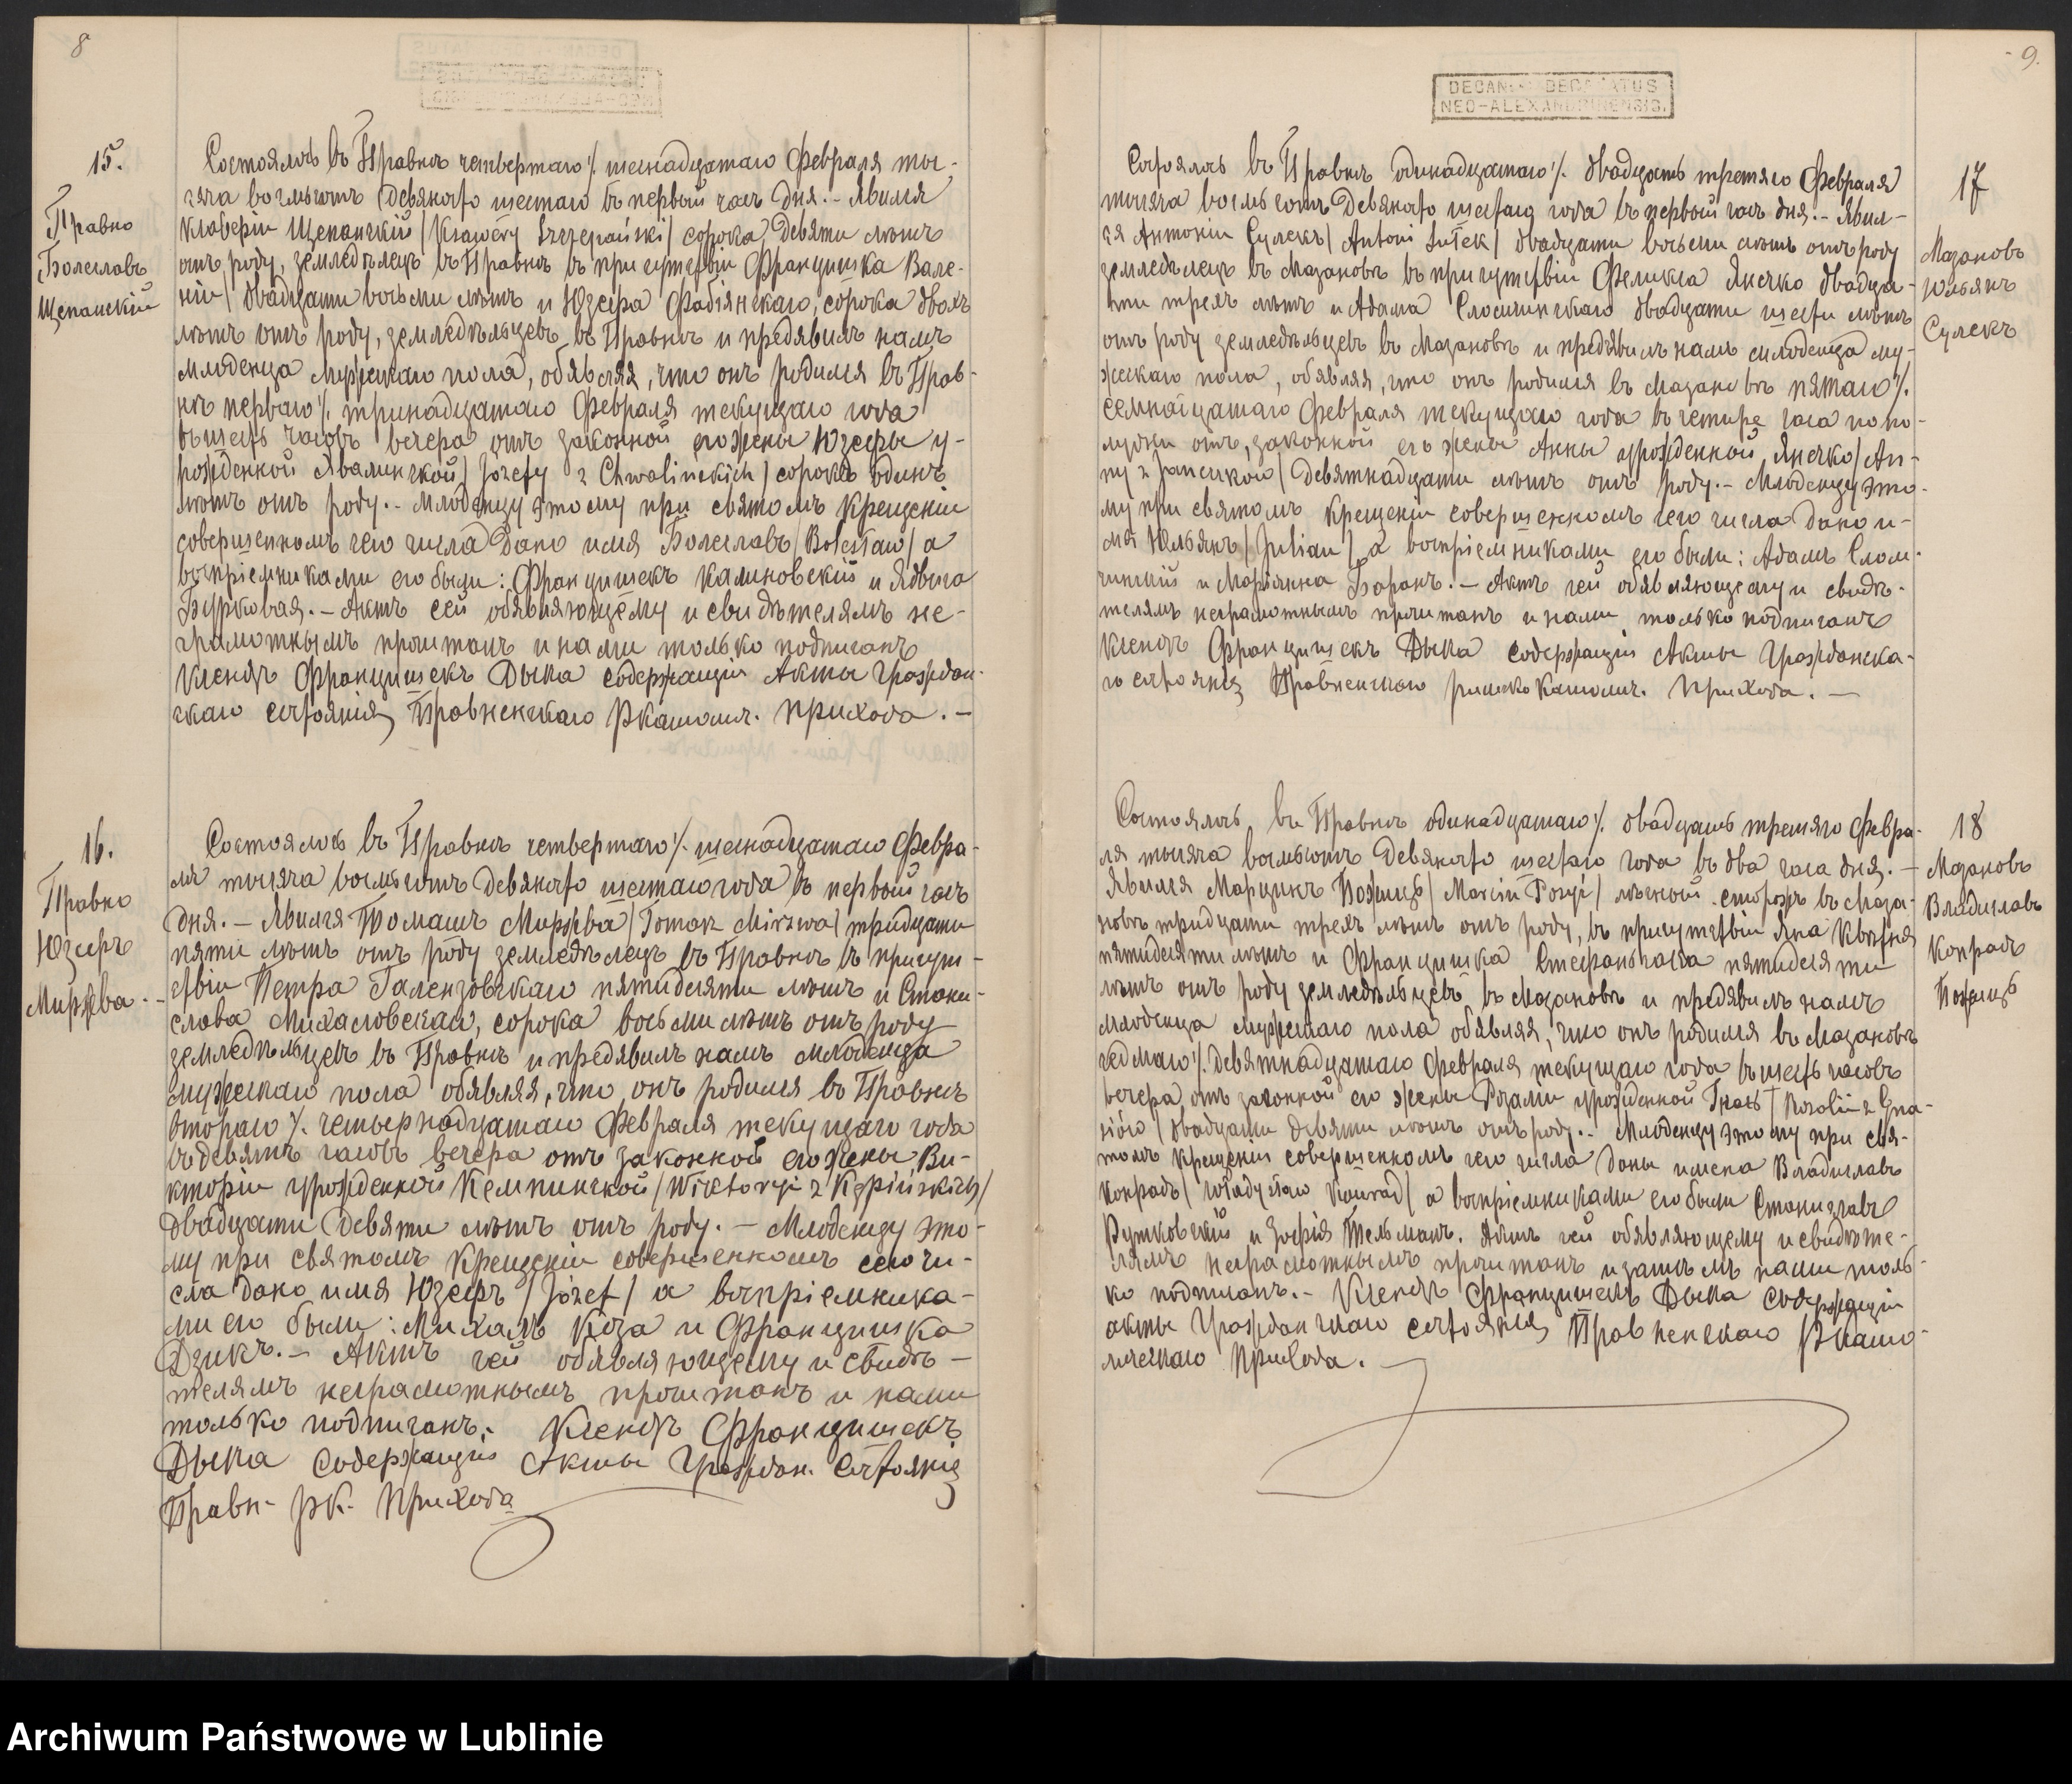 8
15.
Правно
Болеславъ
Щепанскій
Состоялось въ Правнѣ четвертаго/ шестнадцатаго Февраля ты-
сяча восмьсотъ девяносто шестаго въ первый часъ дня. - Явился
Ксаверій Щепанскій /Ksawery Szczepański/ сорока девяти лѣтъ
отъ роду, земледѣлецъ въ Правнѣ въ присутствіи Францишка Вале-
ній двадцати восьми лѣтъ и Юзефа Фабіянскаго, сорока двохъ
лѣтъ отъ роду, земледѣльцевъ въ Правнѣ и предявилъ намъ
младенца мужескаго пола, обявляя, что онъ родился въ Прав-
нѣ перваго/ тринадцатаго Февраля текущаго года
въ шесть часовъ вечера отъ законной его жены Юзефы у-
рожденной Хвалинской /Józefy z Chwalińskich/ сорокъ одинъ
лѣтъ отъ роду. - Младенцу этому при святомъ крещеніи
совершенномъ сего числа дано имя Болеславъ /Bolesław/ а
воспріемниками его были: Францишекъ Калиновскій и Ядвига
Бурковая. - Актъ сей обявляющему и свидѣтелямъ не-
грамотнымъ прочитанъ и нами только подписанъ
Ксендзъ Францишекъ Дыка содержащій Акты Граждан-
скаго состоянія Правненскаго Ркатол. прихода. -
16.
Правно
Юзефъ
Миржва. -
Состоялось въ Правнѣ четвертаго/ шестнадцатаго Февра-
ля тысяча восмьсотъ девяносто шестаго года въ первый часъ
дня. - Явился Томашъ Миржва /Tomasz Mirzwa/ тридцати
пяти лѣтъ отъ роду земледѣлецъ въ Правнѣ въ присут-
ствіи Петра Галензовскаго пятидесяти лѣтъ и Стани-
слава Михаловскаго, сорока восьми лѣтъ отъ роду
земледѣльцевъ въ Правнѣ и предявилъ намъ младенца
мужескаго пола обявляя, что онъ родился въ Правнѣ
втораго/ четырнадцатаго Февраля текущаго года
въ девять часовъ вечера отъ законной его жены Ви-
кторіи урожденной Кемпинской /Wiktoryi z Kępińskich/
двадцати девяти лѣтъ отъ роду. - Младенцу это-
му при святомъ крещеніи совершенномъ сего чи-
сла дано имя Юзефъ /Józef/ а воспріемника-
ми его были: Михалъ Коза и Францишка
Дзикъ. - Актъ сей обявляющему и свидѣ-
телямъ неграмотнымъ прочитанъ и нами
только подписанъ. Ксендзъ Францишекъ
Дыка Содержащій Акты Граждан. Состоянія
Правн. рк. прихода
9.
DECANUS DECANATUS
NEO-ALEXANDRINENSIS.
17
Мазановъ
Юльянъ
Сулекъ
Состоялось въ Правнѣ одинадцатаго/ двадцать третяго Февраля
тысяча восмьсотъ девяносто шестаго года въ первый часъ дня. - Явил-
ся Антоній Сулекъ /Antoni Sułek/ двадцати восьми лѣтъ отъ роду
земледѣлецъ въ Мазановѣ въ присутствіи Феликса Янечко двадца-
ти трехъ лѣтъ и Адама Сломчинскаго двадцати шести лѣтъ
отъ роду земледѣльцевъ въ Мазановѣ и предявилъ намъ младенца му-
жескаго пола, обявляя, что онъ родился въ Мазановѣ пятаго/
семнадцатаго Февраля текущаго года въ четыре часа по по-
лудни отъ законной его жены Анны урожденной Янечко /An-
ny z Janeczkow/ девятнадцати лѣтъ отъ роду. - Младенцу это-
му при святомъ крещеніи совершенномъ сего числа дано и-
мя Юльянъ /Julian/ а воспріемниками его были: Адамъ Слом-
чинскій и Маріянна Баранъ. - Актъ сей обявляющему и свидѣ-
телямъ неграмотнымъ прочитанъ и нами только подписанъ
Ксендзъ Францишекъ Дыка содержащій Акты Гражданска-
го состоянія Правненскаго римско католич. прихода. -
18
Мазановъ
Владиславъ
Конрадъ
Пожицъ
Состоялось въ Правнѣ одинадцатаго/ двадцать третяго Февра-
ля тысяча восмьсотъ девяносто шестаго года въ два часа дня. -
Явился Марцинъ Пожицъ /Marcin Pożyc/ лѣсный сторожъ въ Маза-
новѣ тридцати трехъ лѣтъ отъ роду, въ присутствіи Яна Квѣтня
пятидесяти лѣтъ и Францишка Стефаньчака пятидесяти
лѣтъ отъ роду земледѣльцевъ въ Мазановѣ и предявилъ намъ
младенца мужескаго пола обявляя, что онъ родился въ Мазановѣ
седмаго/ девятнадцатаго Февраля текущаго года въ шесть часовъ
вечера отъ законной его жены Розаліи урожденной Гнась /Rozalii z Gna-
siów/ двадцати девяти лѣтъ отъ роду. - Младенцу этому при свя-
томъ крещеніи совершенномъ сего числа даны имена Владиславъ
Конрадъ /Władysław Konrad/ а воспріемниками его были Станиславъ
Рутковскій и Зофія Тельманъ. Актъ сей обявляющему и свидѣте-
лямъ неграмотнымъ прочитанъ и затѣмъ нами толь-
ко подписанъ. - Ксендзъ Францишекъ Дыка Содержащій
акты Гражданскаго состоянія Правненскаго Ркато-
лическаго прихода. -
Archiwum Państwowe w Lublinie